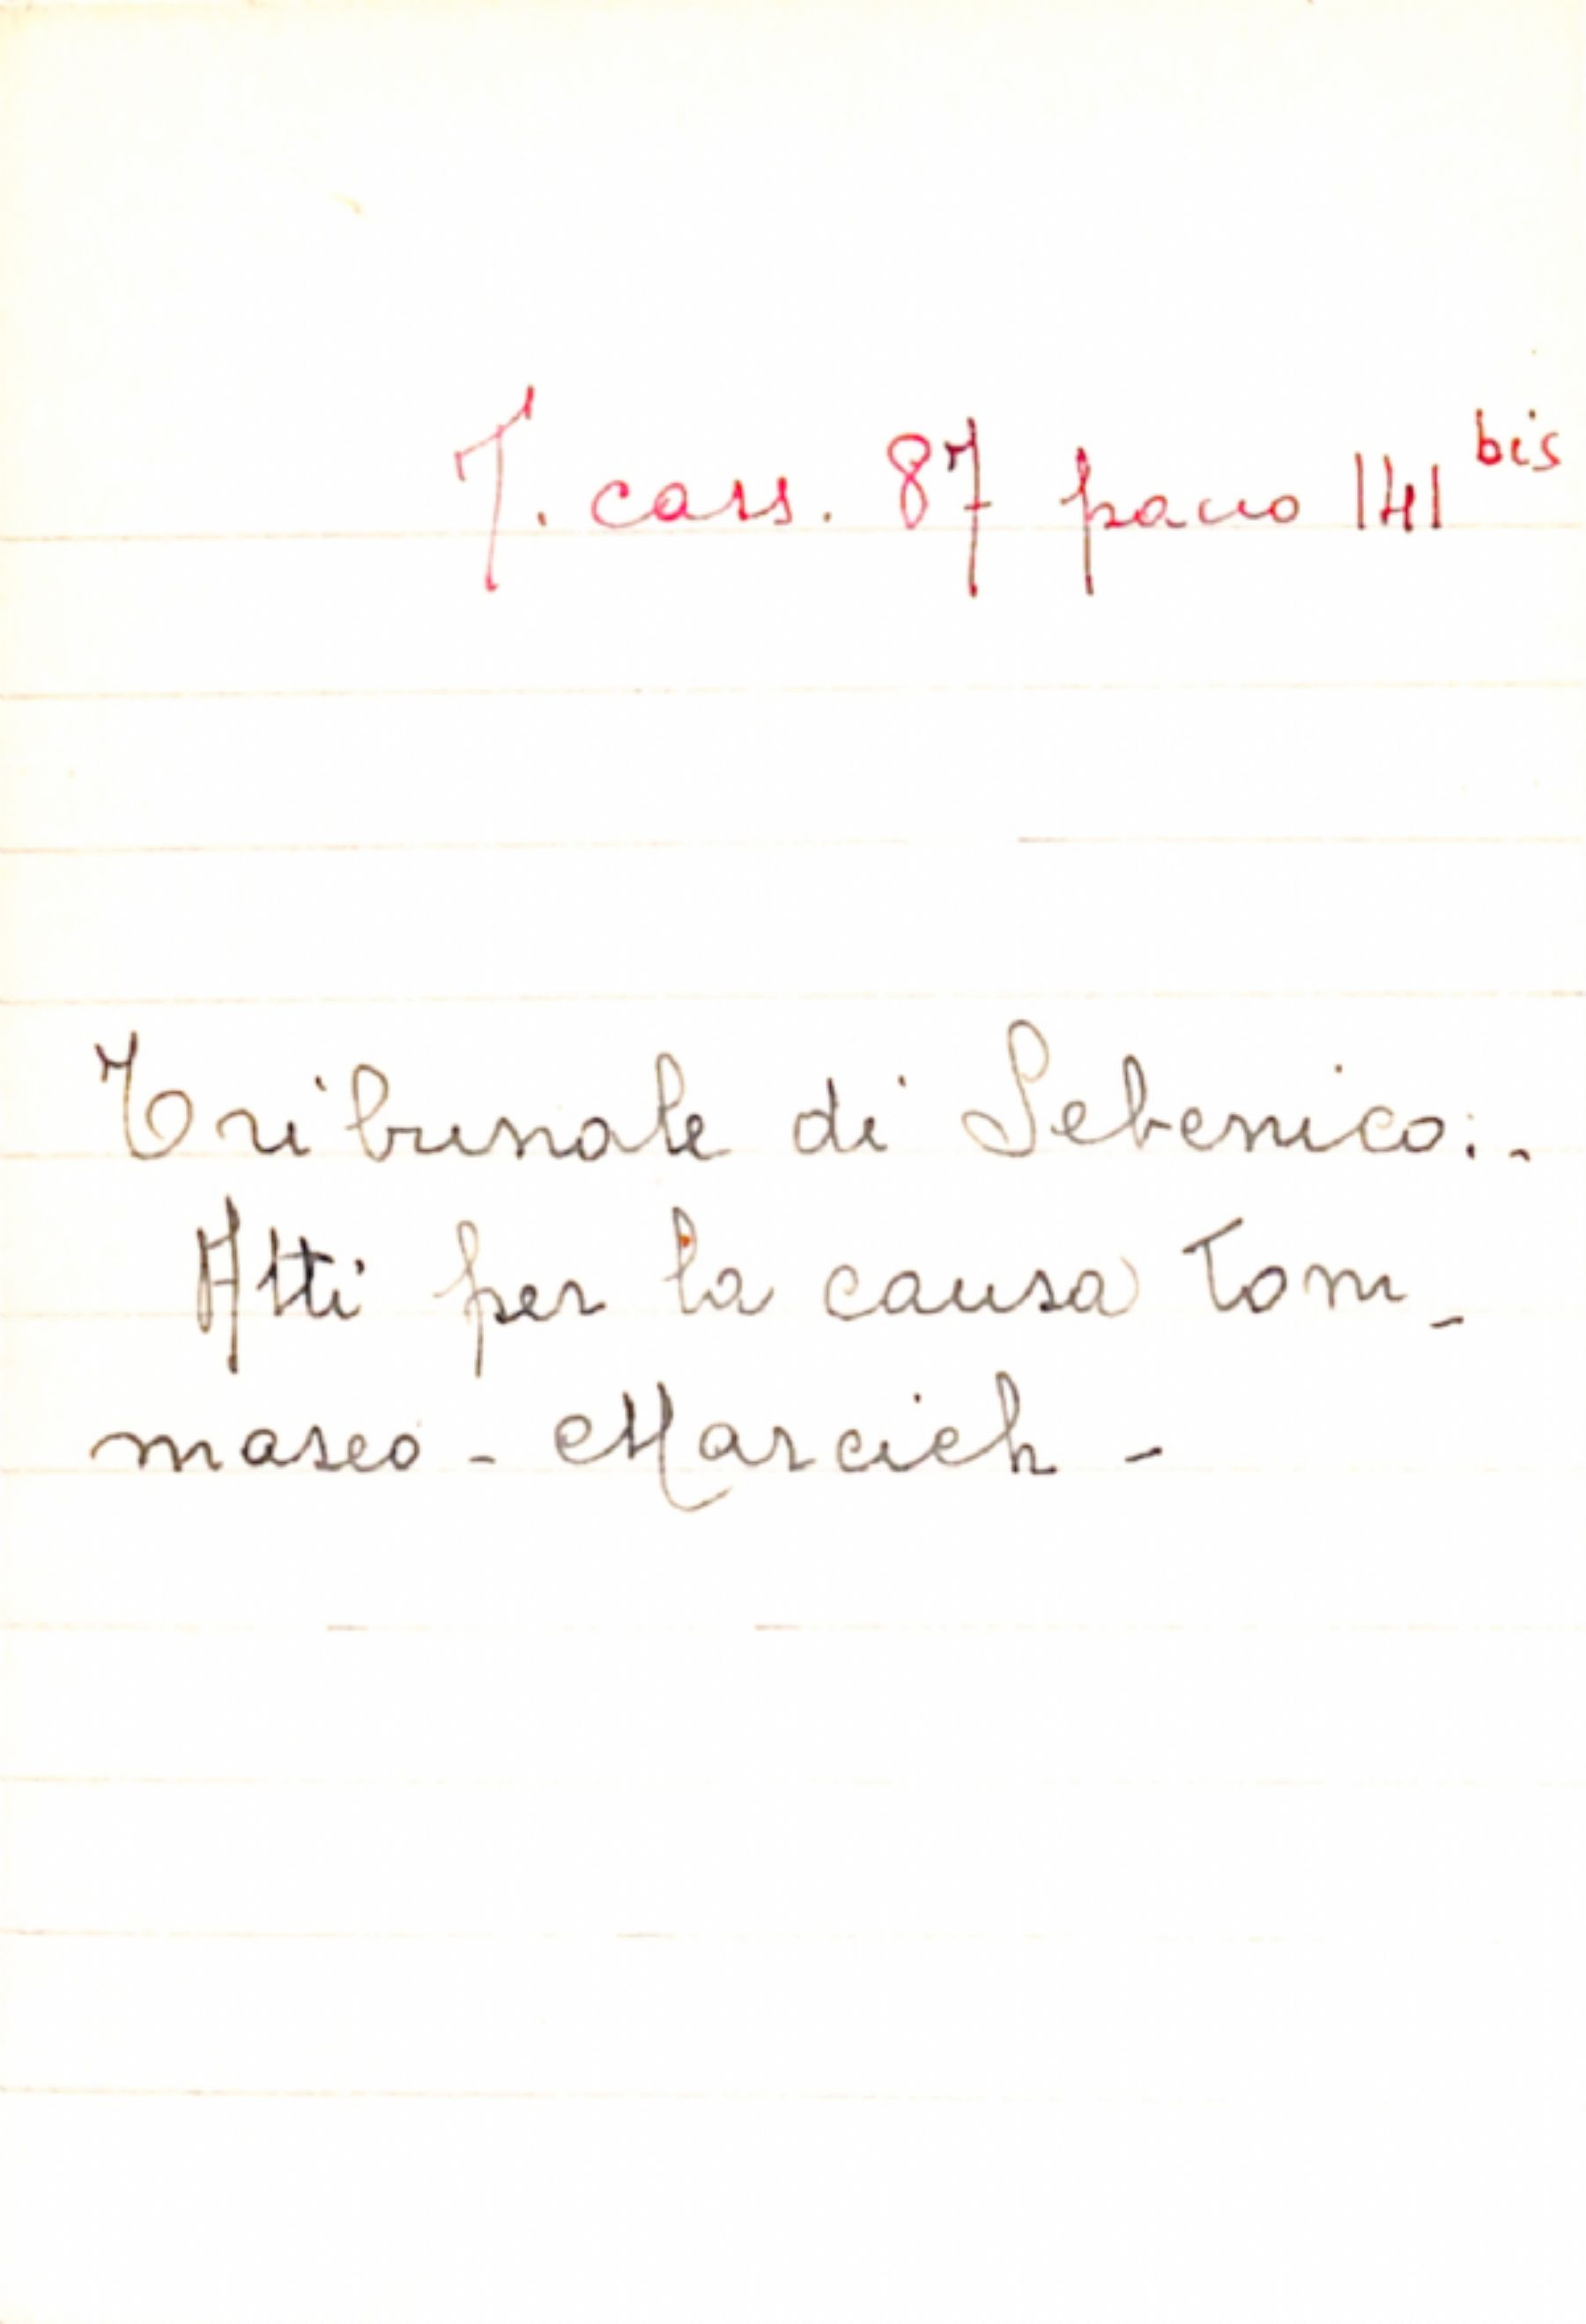 T. cass. 87 pacco 141 bis
Tribunale di Sebenico:-
Atti per la causa Tom-
maseo - Marcich -